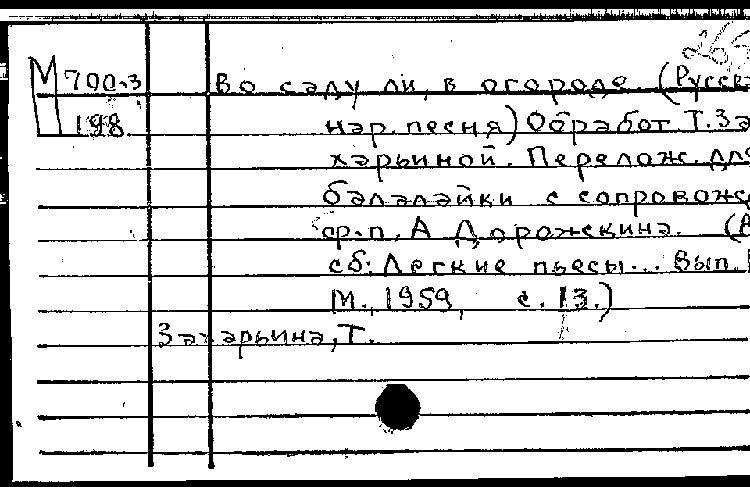 М 700-3
198
Во саду ли, в огороде. (Русск
нар. песня) Обработ. Т. За
харьиной. Перелож. для
балалайки с сопровожд
ф-п. А Дорожкина. (В
сб: Легкие пьесы... Вып.
М., 1959, с. 13.)
Захарьина, Т.